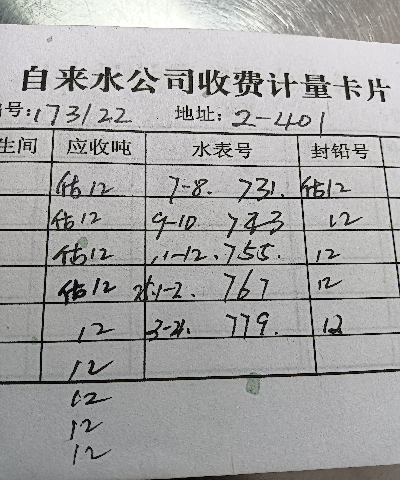 自来水公司收费计量卡片
号:173122 地址:2-401
生间 应收吨 水表号 封铅号
估12 7-8. 731. 估12
估12 9-10 743 12
估12 11-12. 755 12
估12 1-2. 767 12
12 779. 12
12
12
12
12